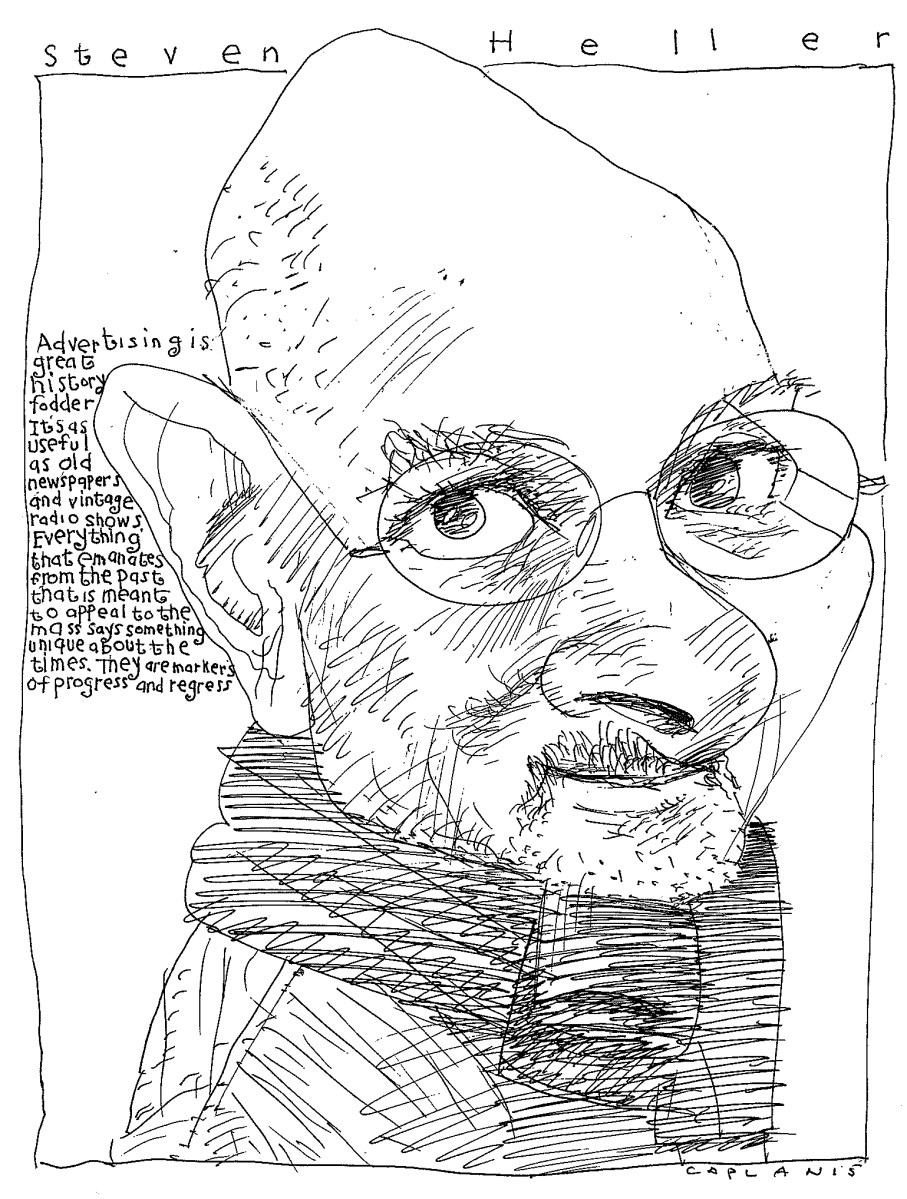 Steven Heller
Advertising is
great
history
fodder
It's as
useful
as old
newspapers
and vintage
radio shows.
Everything
that emanates
from the past
that is meant
to appeal to the
mass says something
unique about the
times. They are markers
of progress and regress
CAPLANIS